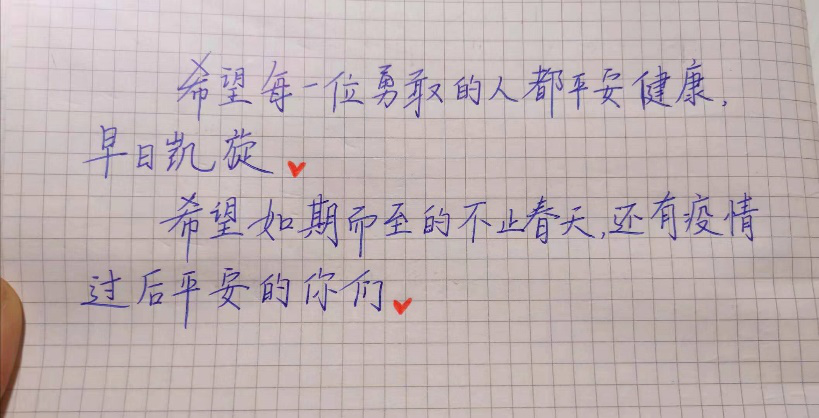 希望每一位勇敢的人都平安健康,
早日凯旋
希望如期而至的不止春天,还有疫情
过后平安的你们